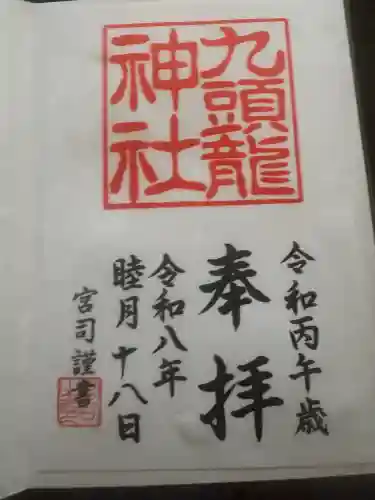 九頭龍
神社
令和丙午歳
奉拝
令和八年
睦月十八日
宮司謹書